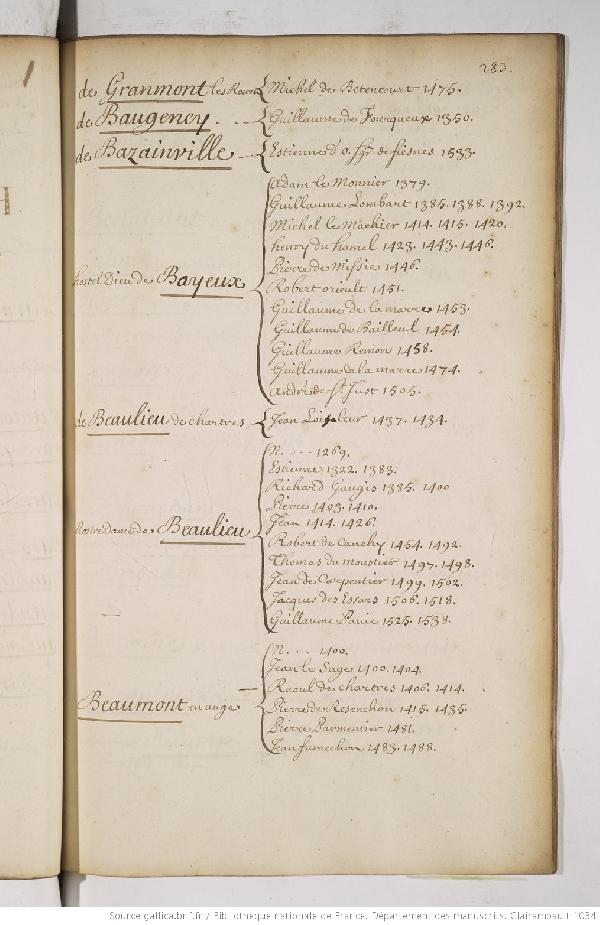 283.
de Granmont les Rouen Michel de Betencourt 1475.
de Baugency. Guillaume de Fourqueux 1350.
de Bazainville Estienne d'o. sgr de fiesnes 1533.
Adam le Monnier 1379.
Guillaume Lombart 1385. 1388. 1392.
Michel le Machier 1414. 1415. 1420.
henry du hamel 1423. 1443. 1446.
Pierre de Missie 1446.
hostel Dieu de Bayeux
Robert orieult 1451.
Guillaume de la marre 1453.
Guillaume de Bailleul 1454.
Guillaume Remon 1458.
Guillaume de la marre 1474.
André de st Just 1505.
de Beaulieu de chartres Jean 1437. 1434.
N. . . . 1269.
Estienne 1322. 1383.
Richard Gaugis 1385. 1400
Pierre 1403. 1410.
Jean 1414. 1426.
Nostre dame de Beaulieu
Robert de Cauchy 1454. 1492.
Thomas du moustier 1497. 1498.
Jean de Carpentier 1499. 1502.
Jacques des Essars 1506. 1518.
Guillaume 1525. 1538.
N. . . . 1400.
Jean le Sage 1400. 1404.
Raoul de chartres 1406. 1414.
Beaumont en auge Pierre de Resenchon 1415. 1435.
Pierre Parmentier 1481.
Jean fumechon 1483. 1488.
Source gallica.bnf.fr / Bibliothèque nationale de France. Département des manuscrits. Clairambault 1034